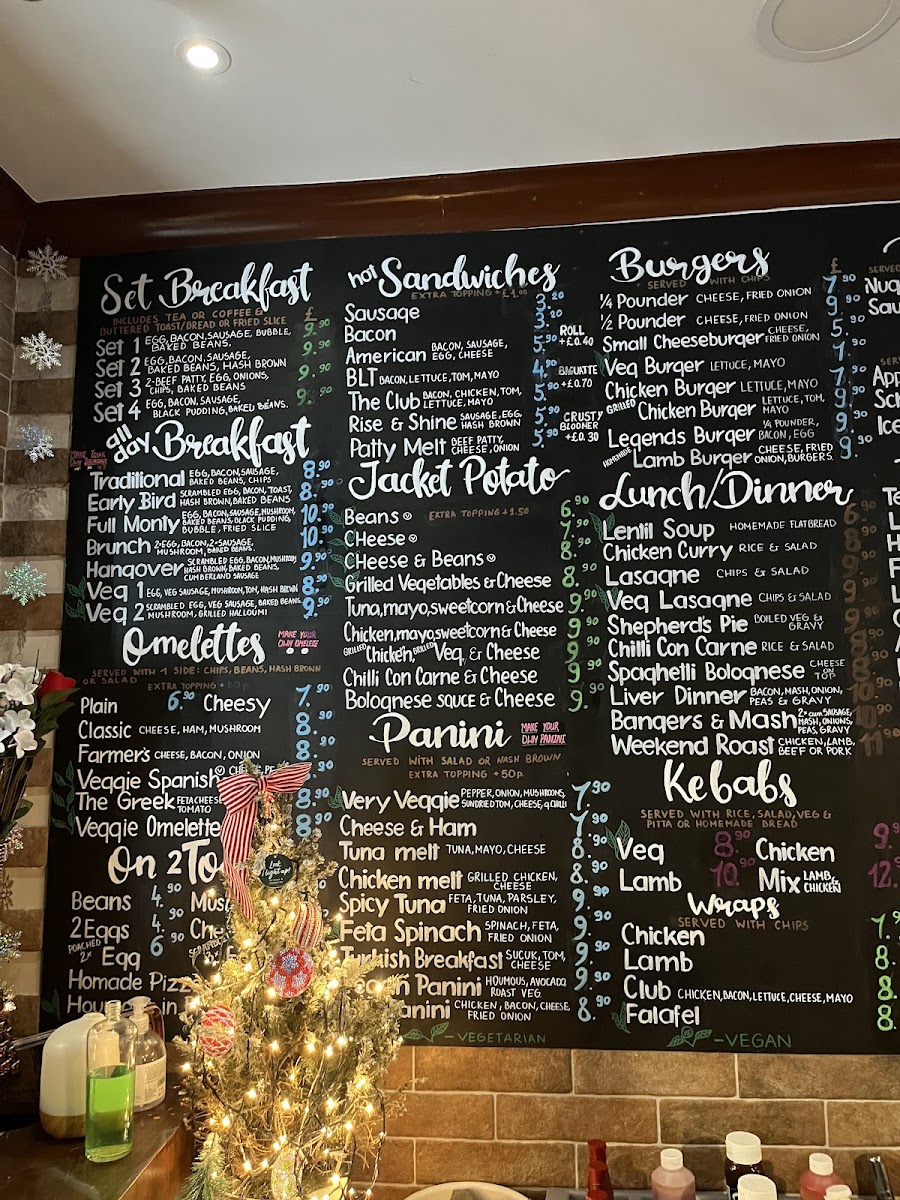 Set Breakfast
INCLUDES TEA OR COFFEE & £
BUTTERED TOAST/BREAD OR FRIED SLICE
Set 1 EGG, BACON, SAUSAGE, BUBBLE, BAKED BEANS. 9.90
Set 2 EGG, BACON, SAUSAGE, BAKED BEANS, HASH BROWN 9.90
Set 3 2-BEEF PATTY, EGG, ONIONS, CHIPS, BAKED BEANS 9.90
Set 4 EGG, BACON, SAUSAGE, BLACK PUDDING, BAKED BEANS. 9.90
all day Breakfast
Traditional EGG, BACON, SAUSAGE, BAKED BEANS, CHIPS 8.90
Early Bird SCRAMBLED EGG, BACON, TOAST, HASH BROWN, BAKED BEANS 8.90
Full Monty EGG, BACON, SAUSAGE, MUSHROOM, BAKED BEANS, BLACK PUDDING, BUBBLE, FRIED SLICE 10.90
Brunch 2-EGG, BACON, 2-SAUSAGE, MUSHROOM, BAKED BEANS. 10.90
Hangover SCRAMBLED EGG, BACON, MUSHROOM, HASH BROWN, BAKED BEANS, CUMBERLAND SAUSAGE 9.90
Veg 1 EGG, VEG SAUSAGE, MUSHROOM, TOM, HASH BROWN 8.90
Veg 2 SCRAMBLED EGG, VEG SAUSAGE, BAKED BEANS MUSHROOM, GRILLED HALLOUMI 9.90
Omelettes
MAKE YOUR
OWN OMELETE
SERVED WITH 1 SIDE: CHIPS, BEANS, HASH BROWN
OR SALAD
EXTRA TOPPING +50p
Plain 6.90 Cheesy 7.90
Classic CHEESE, HAM, MUSHROOM 8.90
Farmer's CHEESE, BACON, ONION 8.90
Veggie Spanish
The Greek FETA CHEESE TOMATO 8.90
Veggie Omelette 8.90
On 2 To
Beans 4.90
2 Eggs 4.90
POACHED 2x Egg 6.90
Homade Piz
hot Sandwiches
EXTRA TOPPING +£1.00
Sausage 3.20
Bacon
American BACON, SAUSAGE, EGG, CHEESE 5.90
BLT BACON, LETTUCE, TOM, MAYO 4.90
The Club BACON, CHICKEN, TOM, LETTUCE, MAYO 5.90
Rise & Shine SAUSAGE, EGG, HASH BROWN 5.90
Patty Melt BEEF PATTY, CHEESE, ONION 5.90
ROLL
+£0.40
BAGUETTE
+£0.70
CRUSTY
BLOOMER
+£0.30
Jacket Potato
EXTRA TOPPING +1.50
Beans 6.90
CHeese 7.90
CHeese & Beans 8.90
Grilled Vegetables & Cheese 8.90
Tuna, mayo, sweetcorn & Cheese 9.90
Chicken, mayo, sweetcorn & Cheese 9.90
GRILLED Chicken, GRILLED Veg, & Cheese 9.90
Chilli Con Carne & Cheese 9.90
Bolognese sauce & Cheese 9.90
Panini
MAKE YOUR
OWN PANINI
SERVED WITH SALAD OR HASH BROWN
EXTRA TOPPING +50p
Very Veggie PEPPER, ONION, MUSHROOMS, SUNDRIED TOM, CHEESE, & CHILLI 7.90
Cheese & Ham 7.90
Tuna melt TUNA, MAYO, CHEESE 8.90
Chicken melt GRILLED CHICKEN, CHEESE 8.90
Spicy Tuna FETA, TUNA, PARSLEY, FRIED ONION 9.90
Feta Spinach SPINACH, FETA, FRIED ONION 9.90
Turkish Breakfast SUCUK, TOM, CHEESE 9.90
Panini HOUMOUS, AVOCADO, ROAST VEG. 9.90
anini CHICKEN, BACON, CHEESE, FRIED ONION 8.90
-VEGETARIAN
Burgers
SERVED WITH CHIPS £
¼ Pounder CHEESE, FRIED ONION 7.90
½ Pounder CHEESE, FRIED ONION 9.90
Small Cheeseburger CHEESE, FRIED ONION 5.90
Veg Burger LETTUCE, MAYO 7.90
Chicken Burger LETTUCE, MAYO 7.90
GRILLED Chicken Burger LETTUCE, TOM, MAYO 9.90
Legends Burger ¼ POUNDER, BACON, EGG 9.90
HOMEMADE Lamb Burger CHEESE, FRIED ONION, BURGERS 9.90
Lunch/Dinner
Lentil Soup HOMEMADE FLATBREAD 6.90
Chicken Curry RICE & SALAD
Lasagne CHIPS & SALAD
Veg Lasagne CHIPS & SALAD
Shepherd's Pie BOILED VEG & GRAVY
Chilli Con Carne RICE & SALAD
Spaghetti Bolognese CHEESE ON TOP
Liver Dinner BACON, MASH, ONION, PEAS & GRAVY
Bangers & Mash 2x CUM. SAUSAGE, MASH, ONIONS, PEAS, GRAVY
Weekend Roast CHICKEN, LAMB, BEEF OR PORK
Kebabs
SERVED WITH RICE, SALAD, VEG &
PITTA OR HOMEMADE BREAD
Veg 8.90 Chicken
Lamb 10.90 Mix LAMB, CHICKEN
Wraps
SERVED WITH CHIPS
Chicken
Lamb
Club CHICKEN, BACON, LETTUCE, CHEESE, MAYO
Falafel
-VEGAN